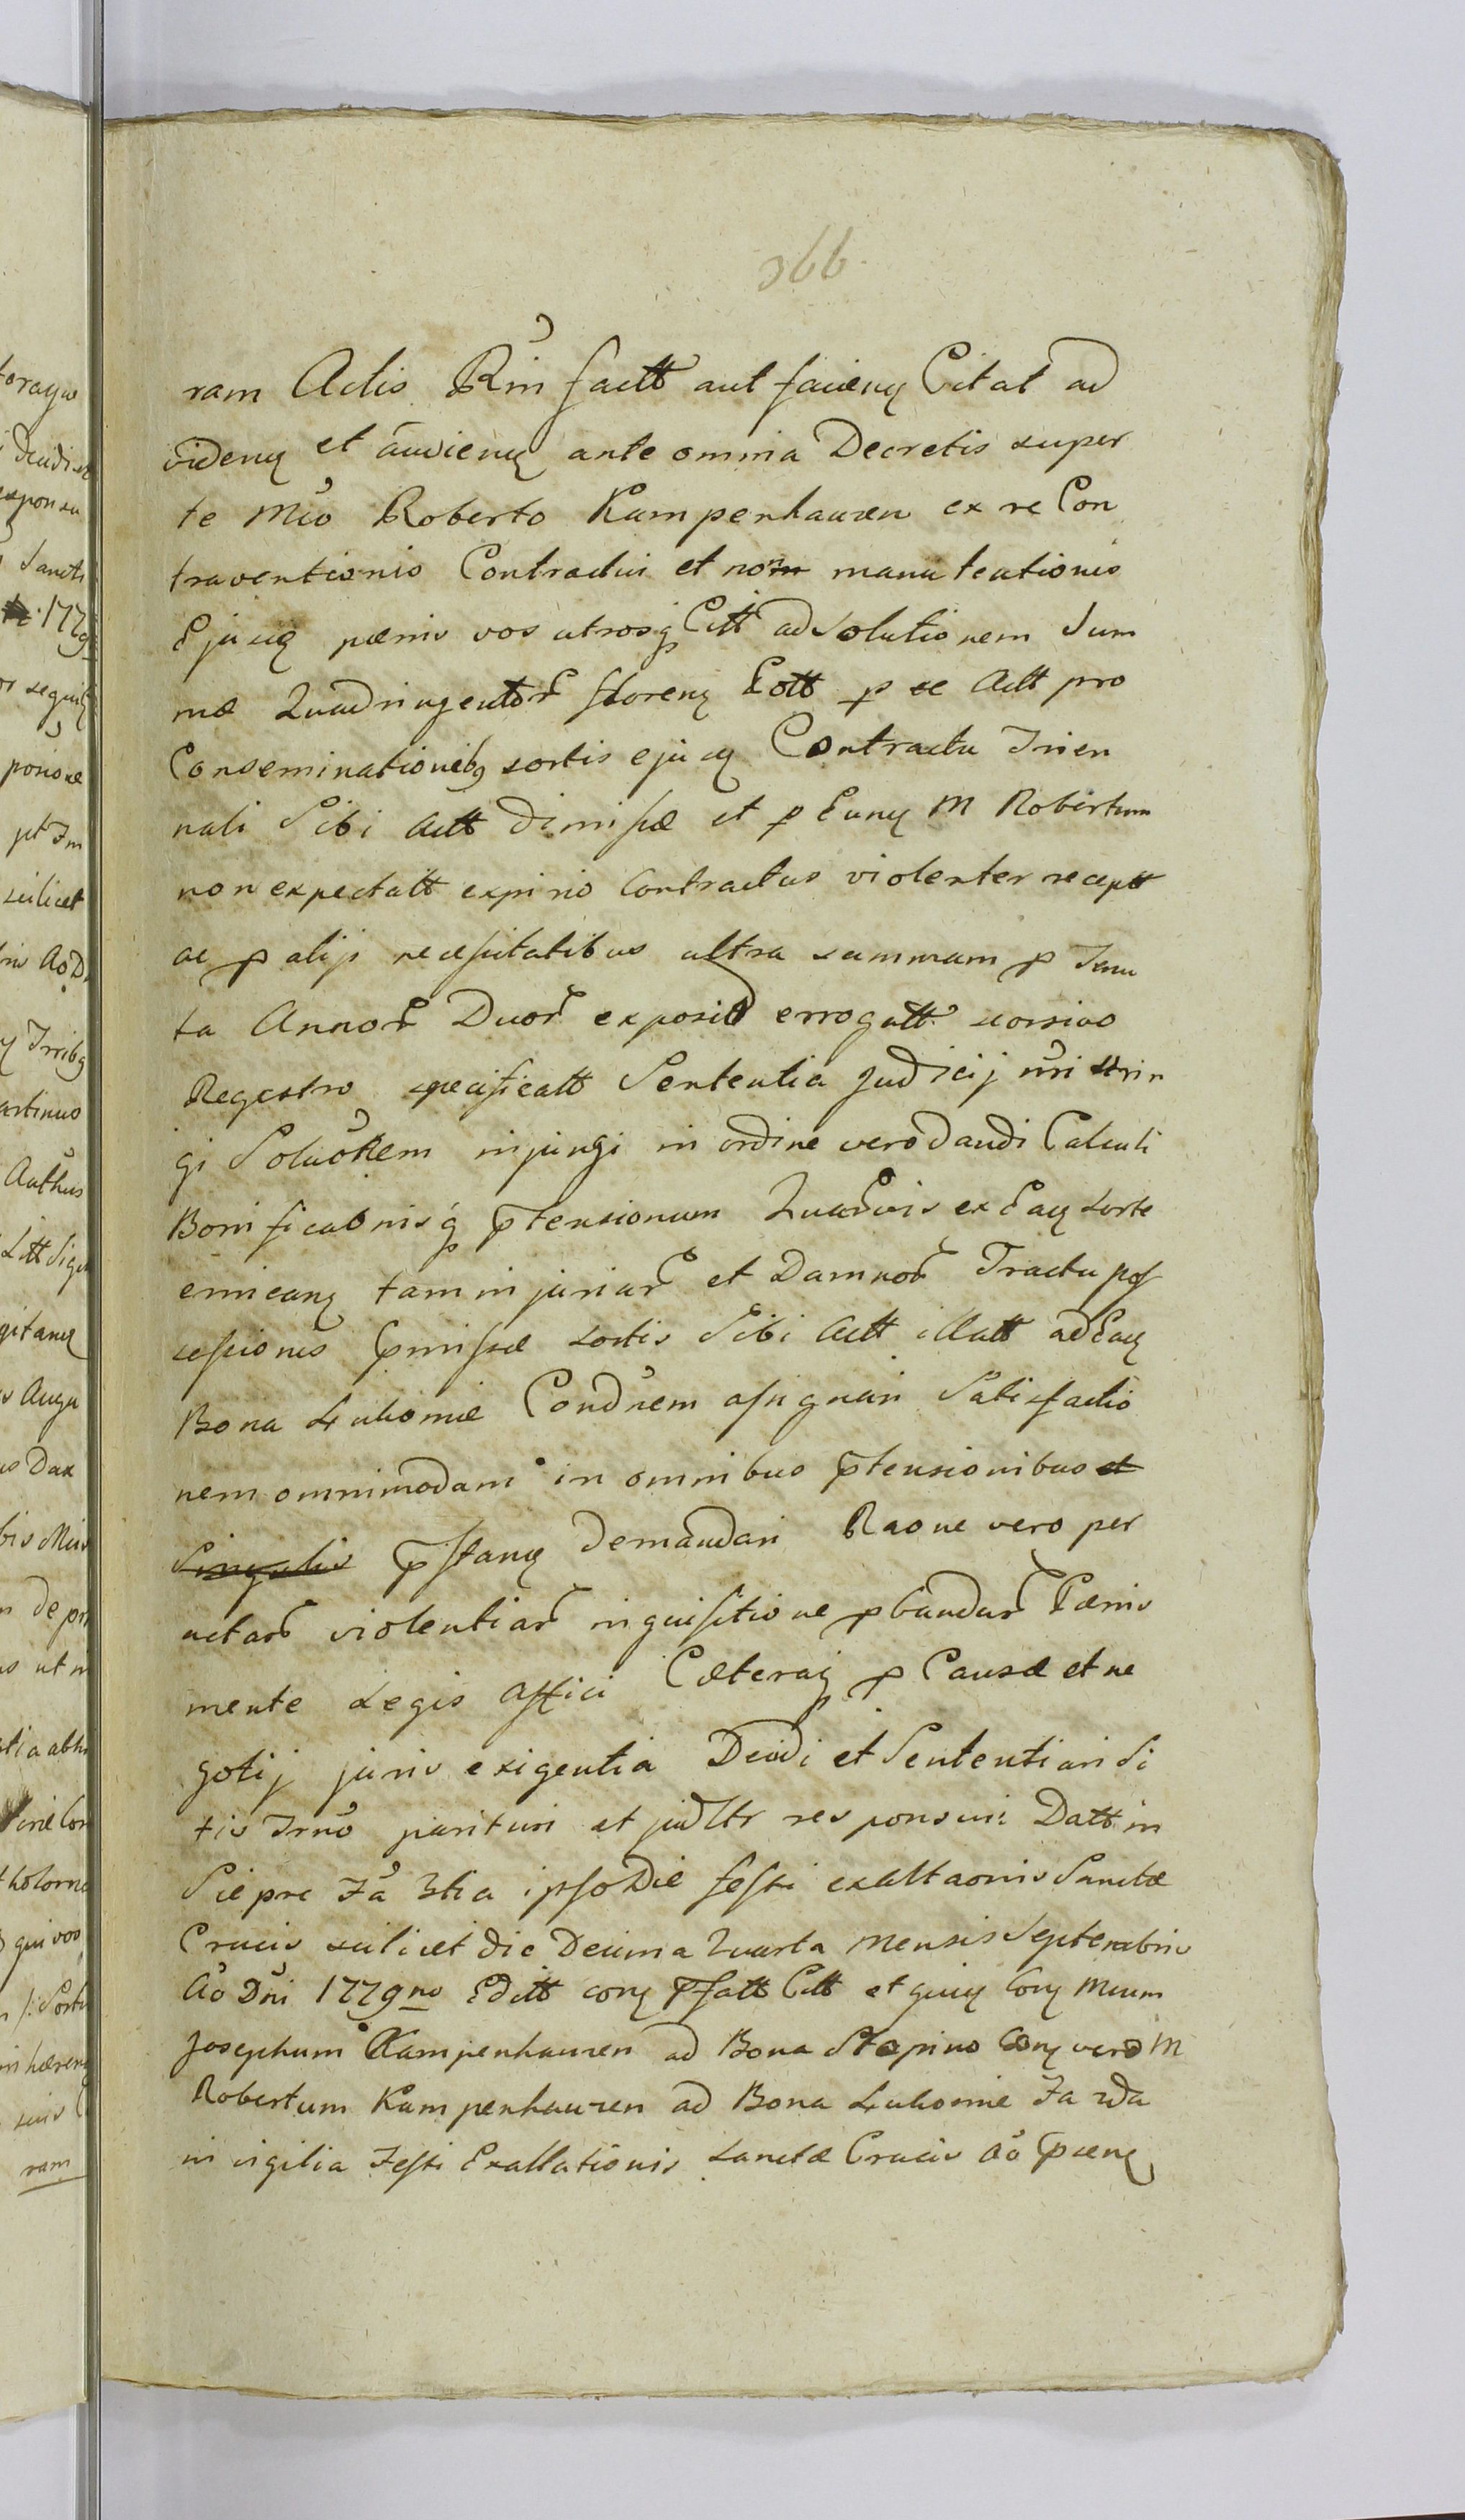 366.
ram Actis Rm̃ factt aut facienꝫ Citat ad
videnꝫ et audienꝫ ante omnia Decretis super
te Mĩo Roberto Kampenhauzen ex re Con
traventionis Contractui et non manutentionis
Ejusꝫ pænis vos utrosqꝫ Citt ad Solutionem Sum
mæ Quadringentor florenꝫ Pott p se Actt pro
Conseminationibꝫ sortis ejusꝫ Contractu Trien
nali Sibi Actt dimissæ et p Eunꝫ M Robertum
non expectatt expirio Contractus violenter receptt
ac p alijs necessitatibus ultra summam p Tenu
ta Annor Duor exposit errogatt seorsivo
Regestro specificatt Sententia Judicij ñri strin
gi Soluõnem injungi in ordine vero dandi Calculi
Bonificaõnisqꝫ p̃tensionum Quarvis ex Eaꝫ Sorte
emicanꝫ tam injuriar et Damnor Tractu pos
sessionis p̃missæ sortis Sibi Actt illatt ad Eaꝫ
Bona Łukomie Condnem assignari Satisfactio
nem omnimodam in omnibus p̃tensionibus et
Singulis p̃standꝫ demandari Raone vero per
petrar violentiar inquisitione pbandar Pænis
mente Legis affici Cæteraqꝫ p Causæ et ne
gotij juris exigentia Decidi et Sententiari Si
tis Trno parituri et judltr responsuri Datt in
Sieprc Fa 3tia ipso Die festi exaltaonis Sanctæ
Crucis scilicet die Decima Quarta Mensis Septembris
Aõ Dni 1779no Editt conꝫ p̃fatt Citt et quiꝫ Conꝫ Mcum
Josephum Kampenhauzen ad Bona Stopino Conꝫ vero M
Robertum Kampenhauzen ad Bona Łukomie Fa 2da
in vigilia Festi Exaltationis Sanctæ Crucis Aõ p̃senꝫ